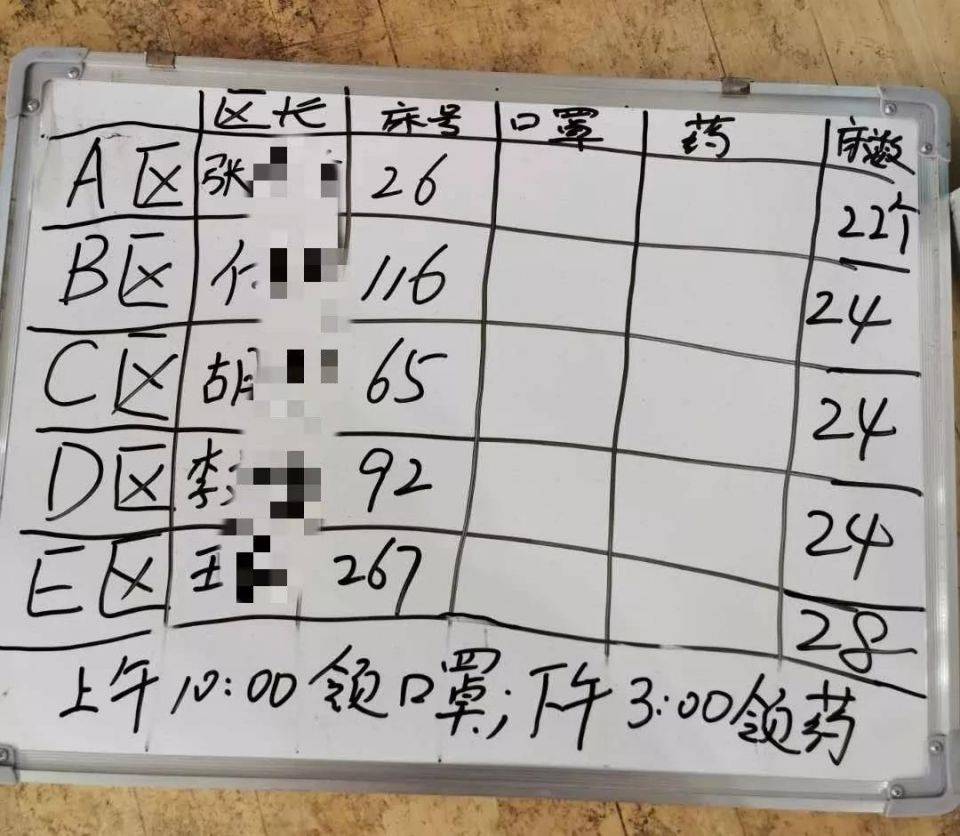 区长 床号 口罩 药 床数
A区 张 26 22个
B区 116 24
C区 胡 65 24
D区 李 92 24
E区 王 267 28
上午10:00领口罩;下午3:00领药